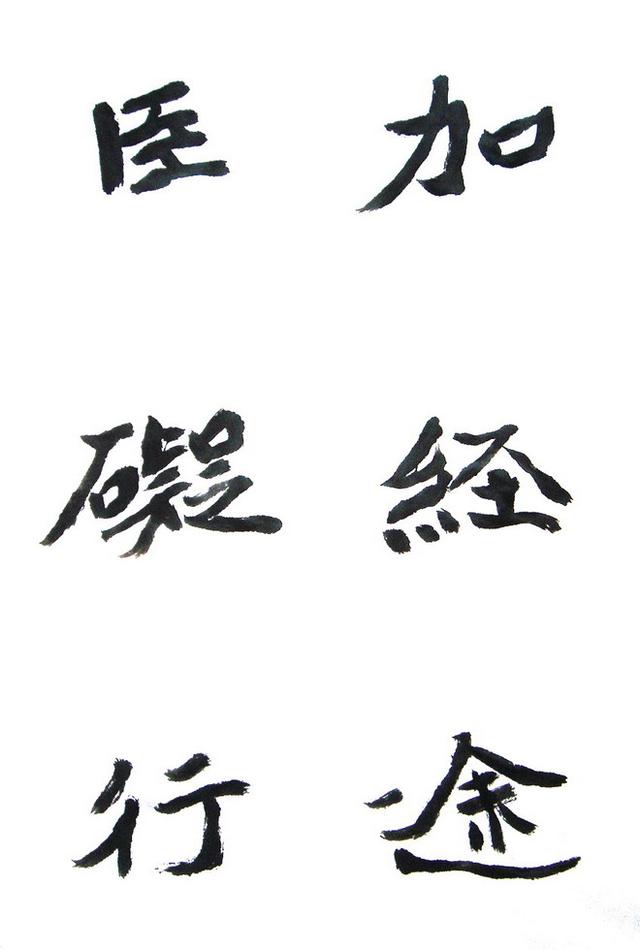 臣 加
礙 経
行 途